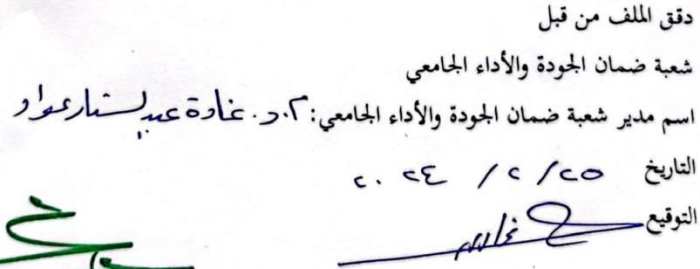 دقق الملف من قبل
شعبة ضمان الجودة والأداء الجامعي
اسم مدير شعبة ضمان الجودة والأداء الجامعي: م.د. غادة عبدالستار عواد
التاريخ ٢٥ / ٢ / ٢٠٢٤
التوقيع